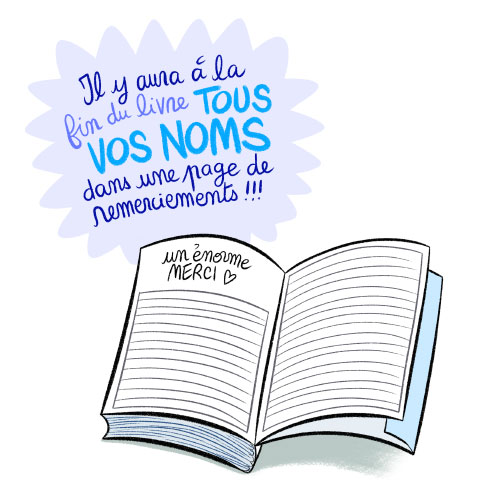 Il y aura à la
fin du livre TOUS
VOS NOMS
dans une page de
remerciements !!!
un énorme
MERCI ♡